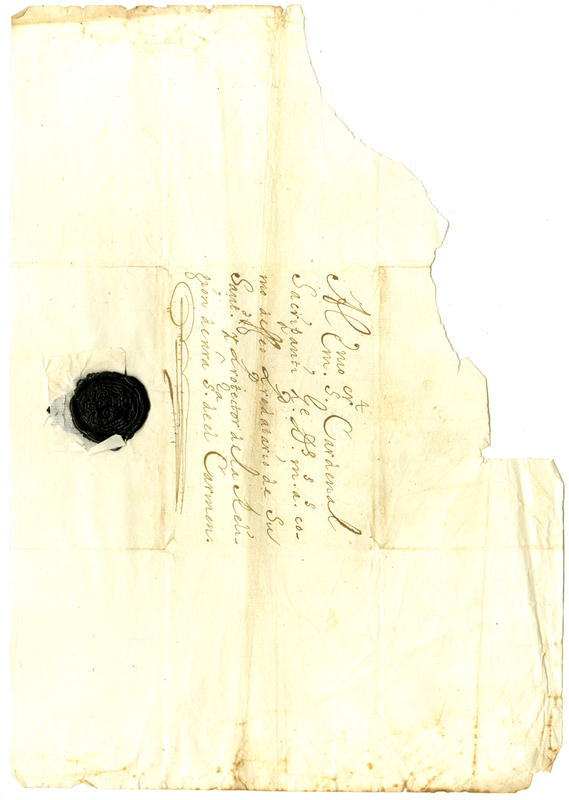 Al Em.mo S.r Cardenal
Sacripanti q.e D.s g.s m.s a.s co-
mo desseo Prodatario de Su
Sant.d y Protector de la Reli-
gion de nra S.ra del Carmen.